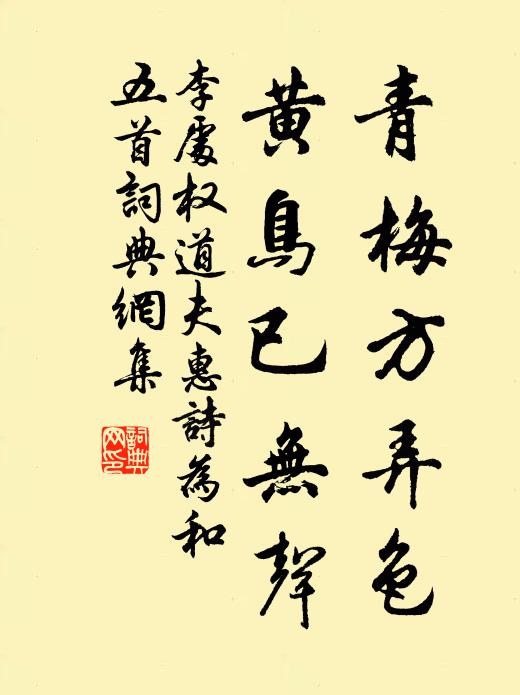 青梅方弄色
黃鳥已無聲
李處权道夫惠詩為和
五首詞典網集
詞典
网印